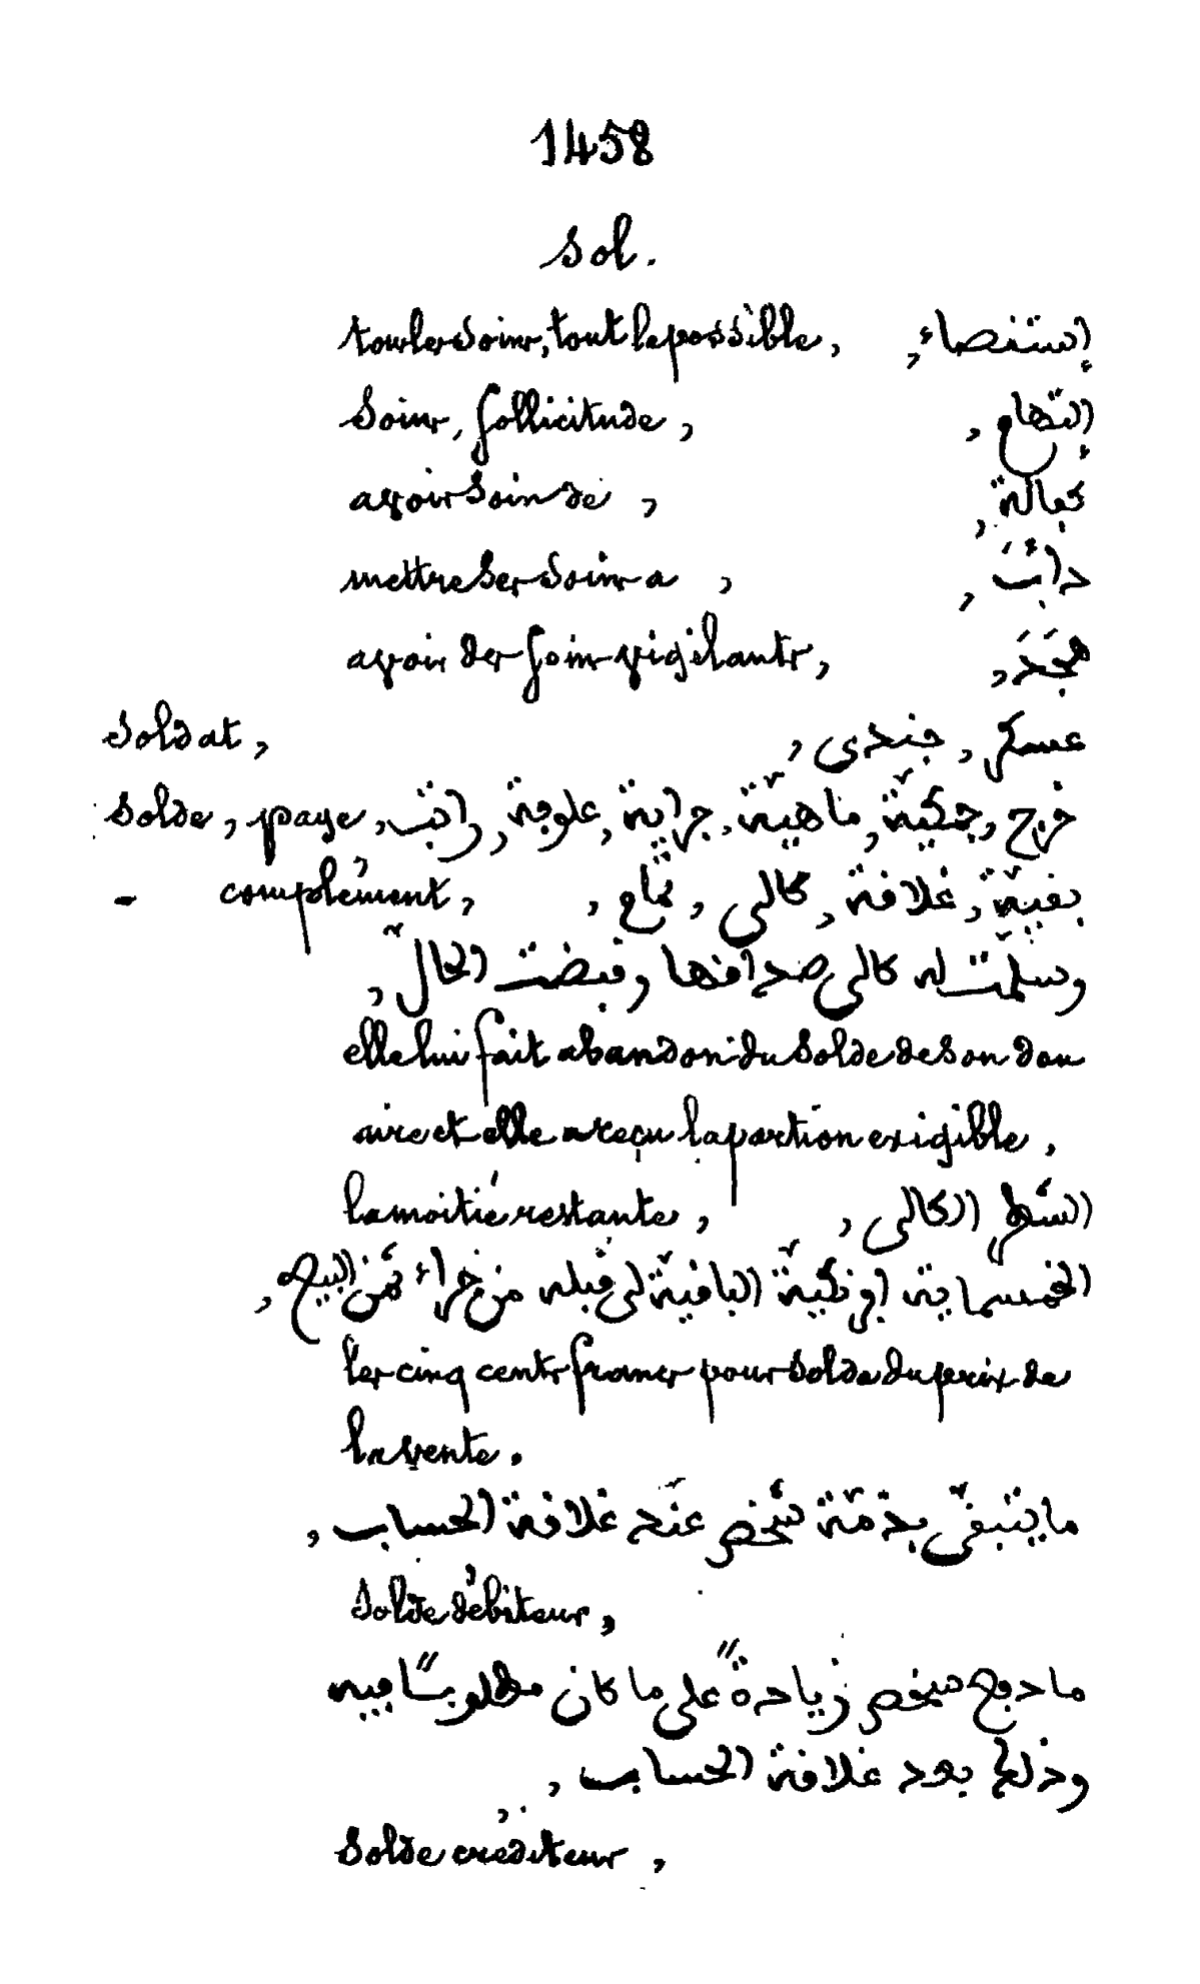 1458
Sol.
tous les soins, tout le possible, إستقصاء,
Soins, sollicitude, إلتهام,
avoir soin de, كفالة,
mettre ses soins a, دائب,
avoir des soins vigilants,
Soldat, عسكر, جندى,
Solde, paye, خرج, جكيّة, ماهيّة, جراية, علوفة, راتب,
- complément, بقيّة, غلاقة, كالى, تمام,
وسلّمت له كالى صداقها وقبضت الحالّ,
elle lui fait abandon du solde de son dou
aire et elle a reçu la partion exigible,
la moitié restante, الشطر الكالى,
الخمسماية افرنكيّة الباقيّة لى قبله من جراء ثمن البيع,
les cinq cents francs pour solde du prix de
la vente.
ما يتبقى بذمّة شخص عند غلاقة الحساب,
Solde débiteur,
ما دفع شخص زيادةً على ما كان مطلوبًا فيه
وذلك بعد غلاقة الحساب,
Solde créditeur,